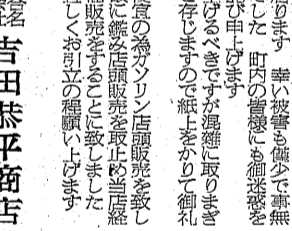 ります 幸い被害も僅少で事無
した 町内の皆様にも御迷惑を
び申上げます
けるべきですが混雑に取りまぎ
と存じますので紙上をかりて御礼
食の為ガソリン店頭販売を致し
に鑑み店頭販売を取止め当店経
販売をすることに致しました
しくお引立の程願い上げます
吉田恭平商店